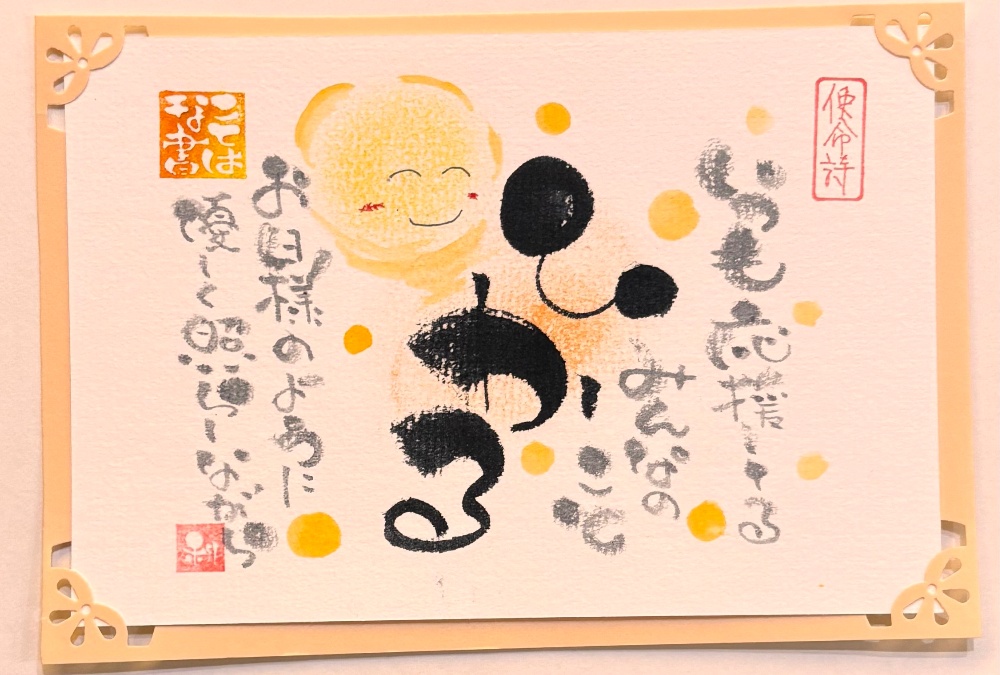 使命詩
いつも応援してる
みんなの
こと
ひかる
お日様のように
優しく照らしながら
ことはな書